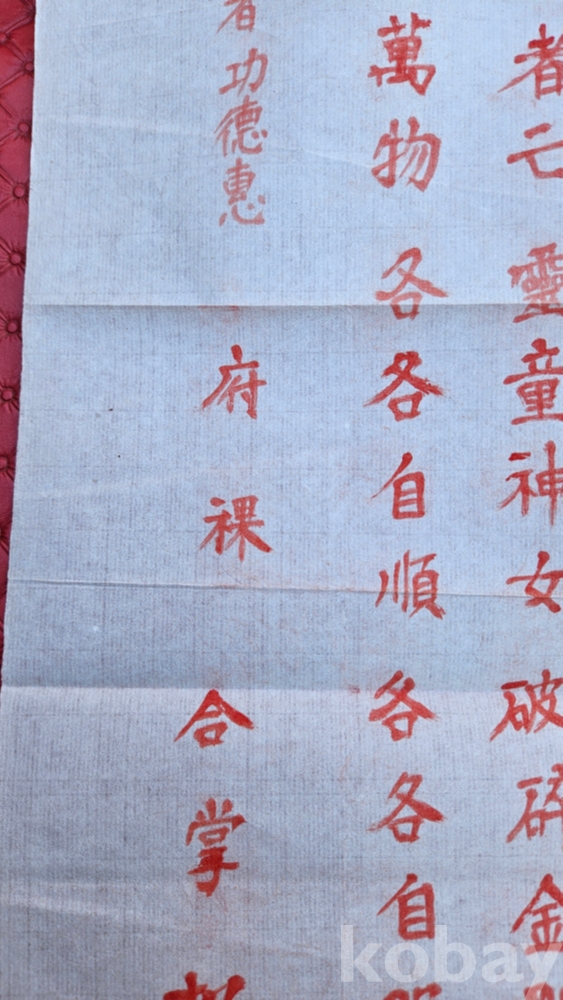 都亡靈童神女破碎金
萬物各各自順各各自
功德惠府裸合掌
kobay